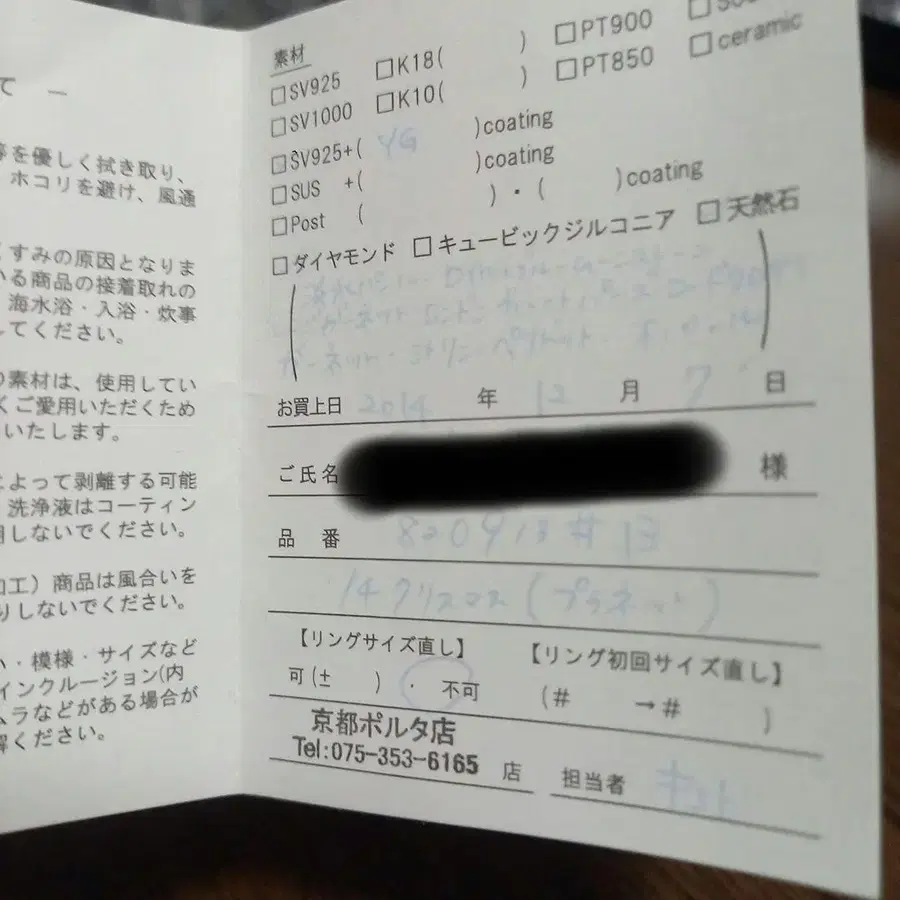 て ー
等を優しく拭き取り、
ホコリを避け、風通
くすみの原因となりま
いる商品の接着取れの
海水浴・入浴・炊事
してください。
素材は、使用してい
くご愛用いただくため
いたします。
によって剥離する可能
洗浄液はコーティン
用しないでください。
加工）商品は風合いを
りしないでください。
い・模様・サイズなど
インクルージョン(内
ムラなどがある場合が
解ください。
素材
□SV925 □K18( ) □PT900
□SV1000 □K10( ) □PT850 □ceramic
□SV925+( YG )coating
□SUS +( )coating
□Post ( )・( )coating
□ダイヤモンド □キュービックジルコニア □天然石
( 淡水パール・ロイヤルブルームーンストーン
ガーネット
ガーネット・シトリン ペリドット )
お買上日 2014 年 12 月 7 日
ご氏名 様
品 番 820913 #13
14クリスマス(プラネット)
【リングサイズ直し】 【リング初回サイズ直し】
可(± )・不可 (# →# )
京都ポルタ店
Tel:075-353-6165 店 担当者